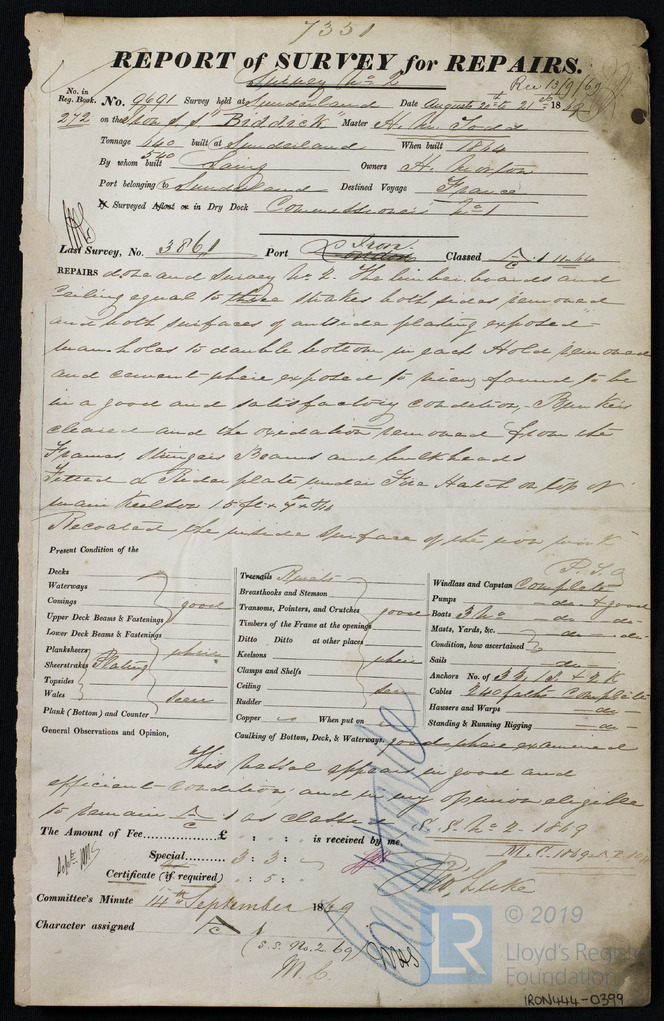 7351
REPORT of SURVEY for REPAIRS.
Survey No 2
Rec 13/9/69
No. in Reg. Book. No. 9691 Survey held at Sunderland Date Augusts 20th to 21st 1869
272 on the Iron S S "Biddick" Master
Tonnage 640 built at Sunderland When built 1864
540
By whom built Laing Owners H. Morton
Port belonging to Sunderland Destined Voyage France
If Surveyed Afloat or in Dry Dock Commissioners No 1
Last Survey, No. 3861 Port London Iron. Classed A 1
REPAIRS done and survey No 2. The limber boards and
Ceiling equal to three strakes both sides removed
and both surfaces of outside plating exposed
manholes to double bottom in each Hold removed
and cement where exposed to view found to be
in a good and satisfactory condition, Bunkers
cleared and the oxidation removed from the
Frames, Stringers Beams and bulkheads
Fitted a Rider plate under Fore Hatch on top of
main Keelson 15 ft x
Recoated the inside surface of the iron work
P.T.O
Present Condition of the
Decks
Waterways
Comings good
Upper Deck Beams & Fastenings
Lower Deck Beams & Fastenings
Planksheers where
Sheerstrakes Plating
Topsides
Wales seen
Plank (Bottom) and Counter
Treenails Rivets
Breasthooks and Stemson
Transoms, Pointers, and Crutches good
Timbers of the Frame at the openings
Ditto Ditto at other places
Keelsons where
Clamps and Shelfs
Ceiling seen
Rudder
Copper When put on
Caulking of Bottom, Deck, & Waterways good where examined
Windlass and Capstan Complete
Pumps do & good
Boats 3 No do do
Masts, Yards, &c. do do
Condition, how ascertained
Sails do
Anchors No. of 3 B, 1 S & 2 K
Cables 240 faths Complete
Hawsers and Warps do
Standing & Running Rigging do
General Observations and Opinion,
This vessel appears in good and
efficient condition, and in my opinion eligible
to remain A 1 as classed S.S. No 2-1869
The Amount of Fee £ : : is received by me,
Special 3 : 3 :
Certificate (if required) : 5 :
Thos, Luke
Committee's Minute 14th September 1869
Character assigned A 1
(S.S. No. 2. 69)
M.C.
LR
© 2019
Lloyd's Register
Foundation
IRON444-0399